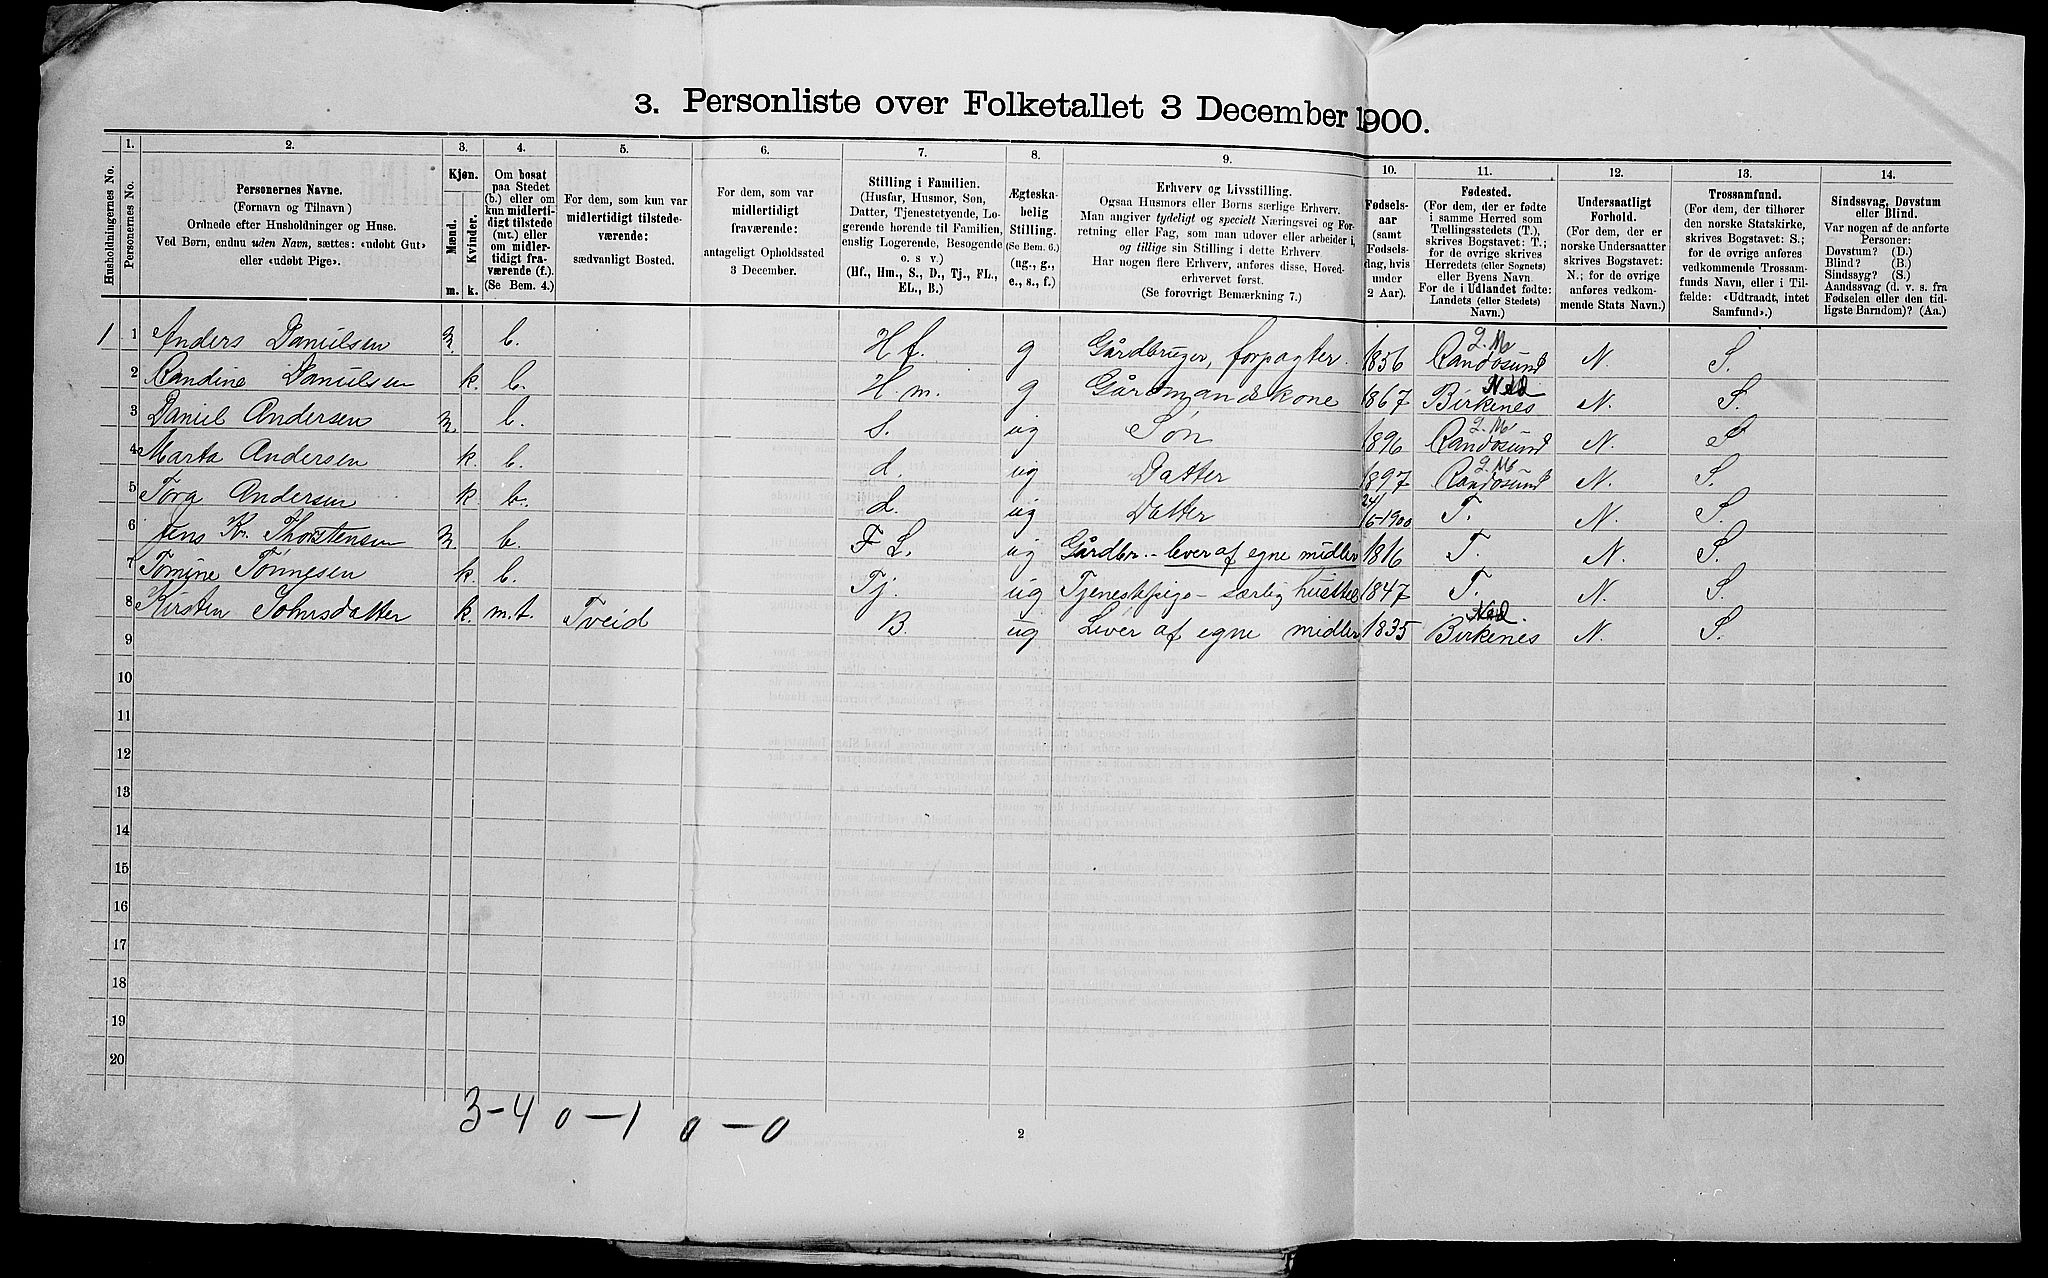 3. Personliste over Folketallet 3 December 1900.
Husholdningernes No.
1.
Personernes No.
2.
Personernes Navne.
(Fornavn og Tilnavn)
Ordnede efter Husholdninger og Huse.
Ved Børn, endnu uden Navn, sættes: «udøbt Gut»
eller «udøbt Pige».
3.
Kjøn.
Mænd.
Kvinder.
m. k.
4.
Om bosat
paa Stedet
(b.) eller om
kun midlerti-
digt tilstede
(mt.) eller
om midler-
tidigt fra-
værende (f.).
(Se Bem. 4.)
5.
For dem, som kun var
midlertidigt tilstede-
værende:
sædvanligt Bosted.
6.
For dem, som var
midlertidigt
fraværende:
antageligt Opholdssted
3 December.
7.
Stilling i Familien.
(Husfar, Husmor, Søn,
Datter, Tjenestetyende, Lo-
gerende hørende til Familien,
enslig Logerende, Besøgende
o. s v.)
(Hf., Hm., S., D., Tj., FL.,
EL., B.)
8.
Ægteska-
belig
Stilling.
(Se Bem. 6.)
(ug., g.,
e., s., f.)
9.
Erhverv og Livsstilling.
Ogsaa Husmors eller Børns særlige Erhverv.
Man angiver tydeligt og specielt Næringsvei og For-
retning eller Fag, som man udøver eller arbeider i,
og tillige sin Stilling i dette Erhverv
Har nogen flere Erhverv, anføres disse, Hoved-
erhvervet først.
(Se forøvrigt Bemærkning 7.)
10.
Fødsels-
aar
(samt
Fødsels-
dag, hvis
under
2 Aar).
11.
Fødested.
(For dem, der er fødte
i samme Herred som
Tællingsstedets (T.),
skrives Bogstavet: T.;
for de øvrige skrives
Herredets (eller Sognets)
eller Byens Navn
For de i Udlandet fødte:
Landets (eller Stedets)
Navn.)
12.
Undersaatligt
Forhold.
(For dem, der er
norske Undersaatter
skrives Bogstavet:
N.; for de øvrige
anføres vedkom-
mende Stats Navn.)
13.
Trossamfund.
(For dem, der tilhører
den norske Statskirke,
skrives Bogstavet: S.;
for de øvrige anføres
vedkommende Trossam-
funds Navn, eller i Til-
fælde: «Udtraadt, intet
Samfund».)
14.
Sindssvag, Døvstum
eller Blind.
Var nogen af de anførte
Personer:
Døvstum? (D.)
Blind? (B.)
Sindssyg? (S.)
Aandssvag (d. v. s. fra
Fødselen eller den tid-
ligste Barndom)? (Aa.)
1 1 Anders Danielsen m. b. Hf. g Gårdbruger, forpagter. 1856 L. M Randøsund N. S.
2 Randine Danielsen k. b. Hm. g Gårdmandskone 1867 Ned Birkenes N. S.
3 Daniel Andersen m. b. S. ug Søn 1896 L. M Randøsund N. S
4 Marta Andersen k. b. d. ug Datter 1897 L. M Randøsund N. S.
5 Tora Andersen k b. d. ug Datter 24/6-1900 T. N. S.
6 Jens Kr. Thorstensen m. b. F L. ug Gårdbr. - lever af egne midler 1816 T. N. S.
7 Tomine Tønnesen k b. Tj. ug Tjenestepige - særlig husstel 1847 T. N. S.
8 Kirsten Johnsdatter k. m.t. Tveid B. ug Lever af egne midler 1835 Ned. Birkenes N. S.
9
10
11
12
13
14
15
16
17
18
19
20
3-4 0-1 0-0
2